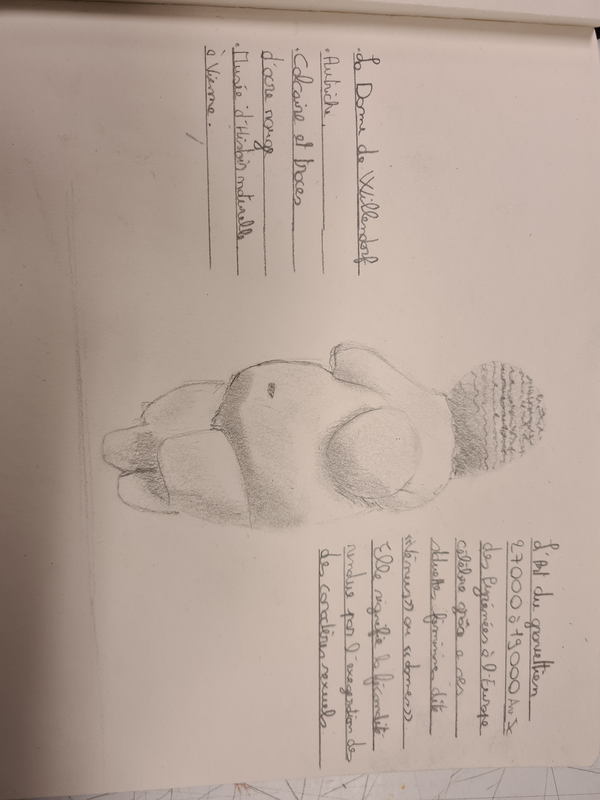 .La Dame de Willendorf
.Autriche.
.Calcaire et traces
d'ocre rouge
.Musée d'Histoire naturelle
à Vienne.
L'Art du gravettien
27000 à 19000 Av JC
des Pyrénées à l'Europe
célèbre grâce a ses
statuettes féminine dit
vénuses ou
Elle signifie la fécondité
rendue par l'exagération des
des caractères sexuels